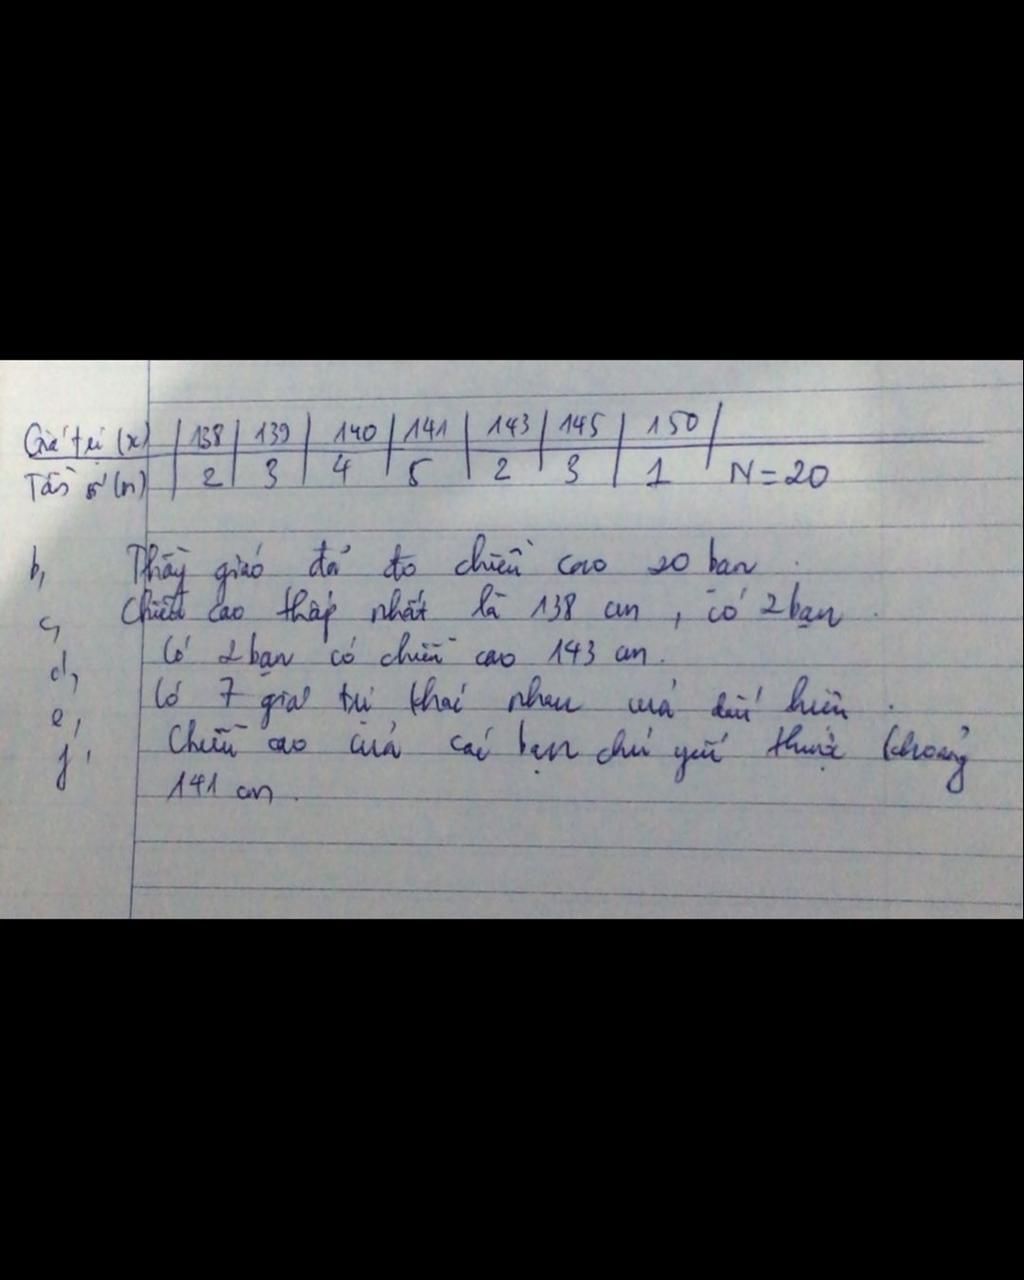 Giá trị (x) | 138 | 139 | 140 | 141 | 143 | 145 | 150 |
Tần số (n) | 2 | 3 | 4 | 5 | 2 | 3 | 1 | N = 20
b, Thầy giáo đã đo chiều cao 20 bạn.
c, Chiều cao thấp nhất là 138 cm, có 2 bạn.
d, Có 2 bạn có chiều cao 143 cm.
e, Có 7 giá trị khác nhau của dấu hiệu.
f, Chiều cao của các bạn chủ yếu thuộc khoảng
141 cm.